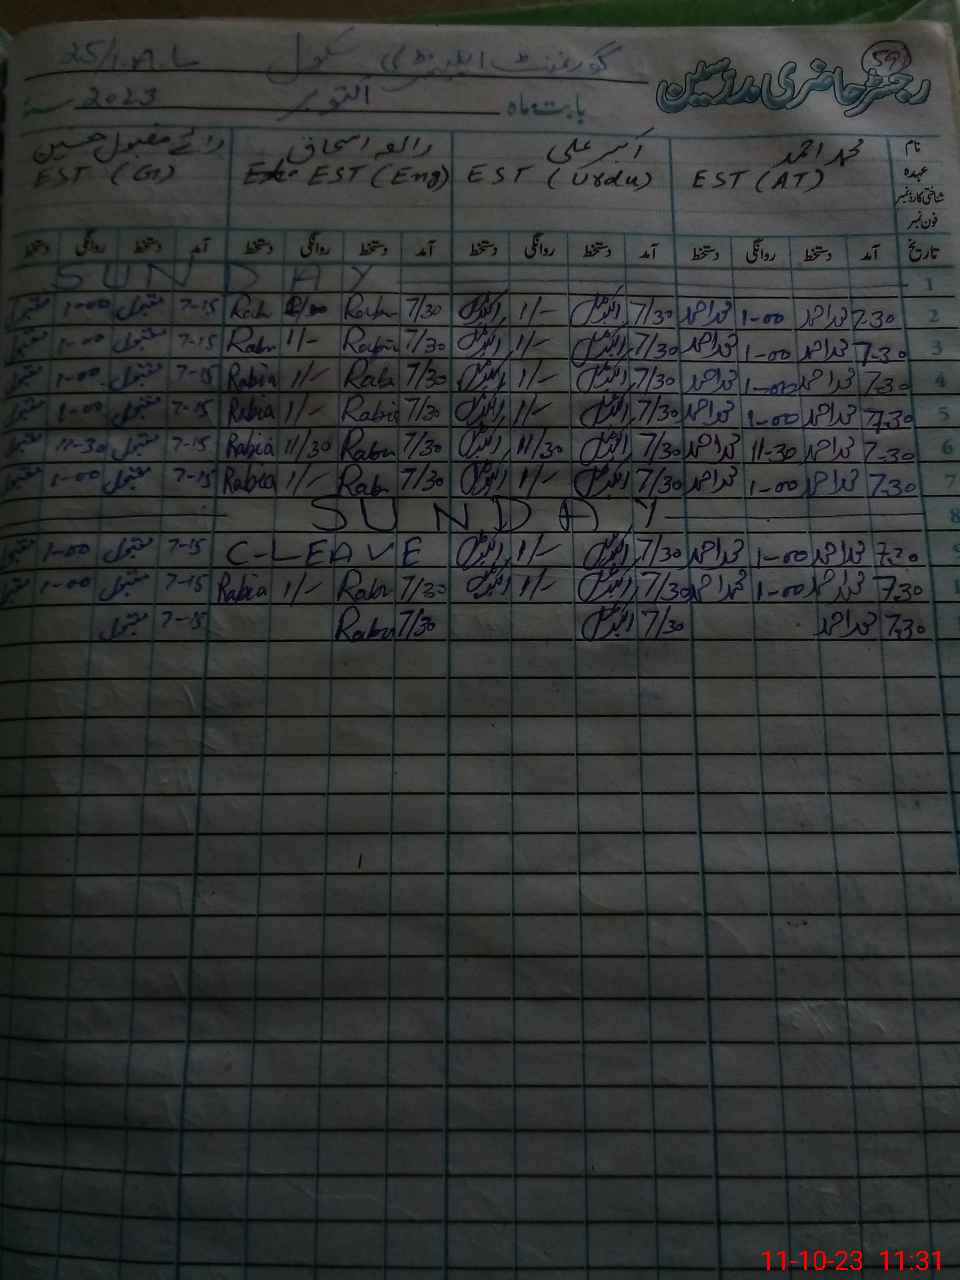 59
رجسٹر حاضری مدرسین گورنمنٹ ایلیمنٹری سکول 25/1.A.L
بابت ماہ اکتوبر 2023
نام محمد احمد اکبر علی رابعہ اسحاق رائے مقبول حسین
عہدہ EST (AT) EST (Urdu) EST (Eng) EST (G)
شناختی کارڈ نمبر
فون نمبر
تاریخ آمد دستخط روانگی دستخط آمد دستخط روانگی دستخط آمد دستخط روانگی دستخط آمد دستخط روانگی دستخط
1 SUNDAY
2 7-30 محمد احمد 1-00 محمد احمد 7/30 اکبر علی 1/- اکبر علی 7/30 Rabia Rabia 7-15 مقبول 1-00 مقبول
3 7-30 محمد احمد 1-00 محمد احمد 7/30 اکبر علی 1/- اکبر علی 7/30 Rabia 1/- Rabia 7-15 مقبول 1-00 مقبول
4 7-30 محمد احمد 1-00 محمد احمد 7/30 اکبر علی 1/- اکبر علی 7/30 Rabia 1/- Rabia 7-15 مقبول 1-00 مقبول
5 7-30 محمد احمد 1-00 محمد احمد 7/30 اکبر علی 1/- اکبر علی 7/30 Rabia 1/- Rabia 7-15 مقبول 1-00 مقبول
6 7-30 محمد احمد 11-30 محمد احمد 7/30 اکبر علی 11/30 اکبر علی 7/30 Rabia 11/30 Rabia 7-15 مقبول 11-30 مقبول
7 7-30 محمد احمد 1-00 محمد احمد 7/30 اکبر علی 1/- اکبر علی 7/30 Rabia 1/- Rabia 7-15 مقبول 1-00 مقبول
8 SUNDAY
9 7-30 محمد احمد 1-00 محمد احمد 7/30 اکبر علی 1/- اکبر علی C-LEAVE 7-15 مقبول 1-00 مقبول
7-30 محمد احمد 1-00 محمد احمد 7/30 اکبر علی 1/- اکبر علی 7/30 Rabia 1/- Rabia 7-15 مقبول 1-00 مقبول
7-30 محمد احمد 7/30 اکبر علی 7/30 Rabia 7-15 مقبول
11-10-23 11:31